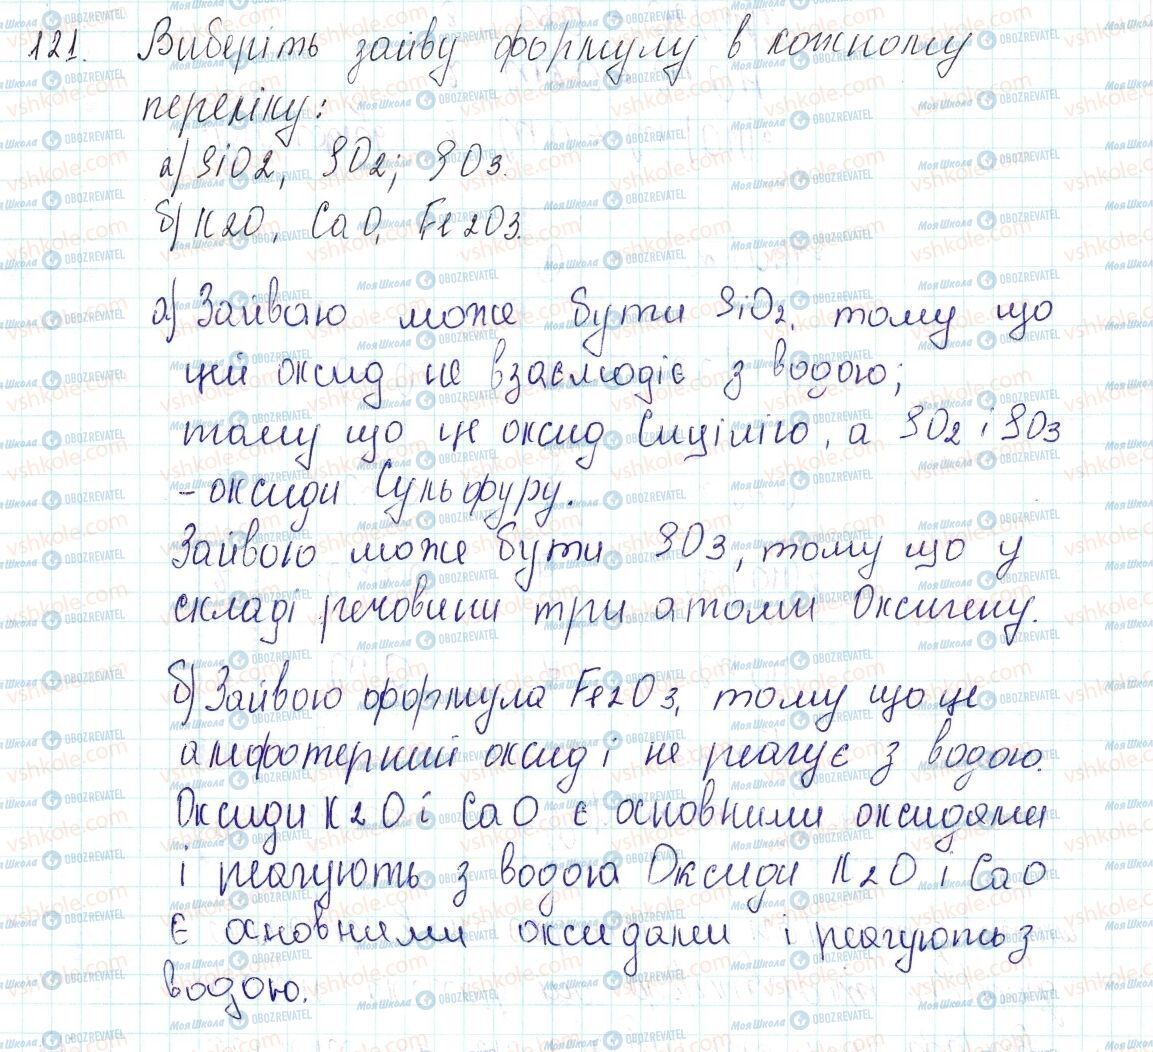 121. Виберіть зайву формулу в кожному
переліку:
а) SiO2, SO2; SO3.
б) K2O, CaO, Fe2O3.
а) Зайваю може бути SiO2, тому що
цей оксид не взаємодіє з водою;
тому що це оксид Сиціліго, а SO2 і SO3
- оксиди Сульфуру.
Зайвою може бути SO3, тому що у
складі речовини три атоми Оксигену.
б) Зайвою формула Fe2O3, тому що це
амфотерний оксид і не реагує з водою.
Оксиди K2O і CaO є основними оксидами
і реагують з водою Оксиди K2O і CaO
є основними оксидами і реагують з
водою.